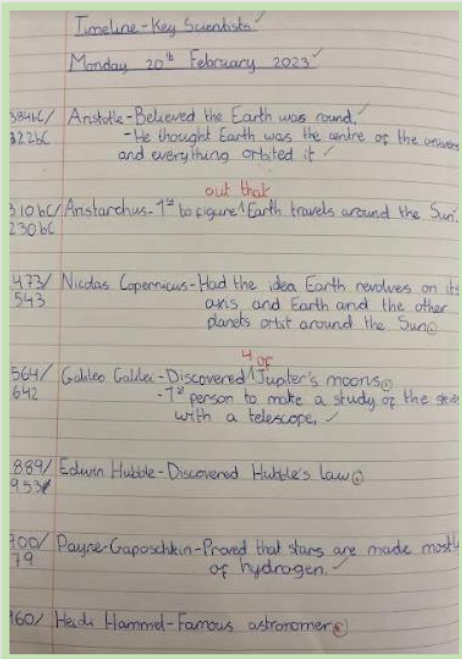 Timeline - Key Scientists
Monday 20th February 2023
384bC/ Aristotle - Believed the Earth was round.
322bC - He thought Earth was the centre of the univers
and everything orbited it
out that
310bC/ Aristarchus - 1st to figure ^ Earth travels around the Sun.
230bC
473/ Nicolas Copernicus - Had the idea Earth revolves on its
543 axis and Earth and the other
planets orbit around the Sun.
4 of
564/ Galileo Galilei - Discovered ^ Jupiter's moons.
642 - 1st person to make a study of the skies
with a telescope.
889/ Edwin Hubble - Discovered Hubble's law.
953
900/ Payne-Gaposchkin - Proved that stars are made mostly
79 of hydrogen.
960/ Heidi Hammel - Famous astronomer.